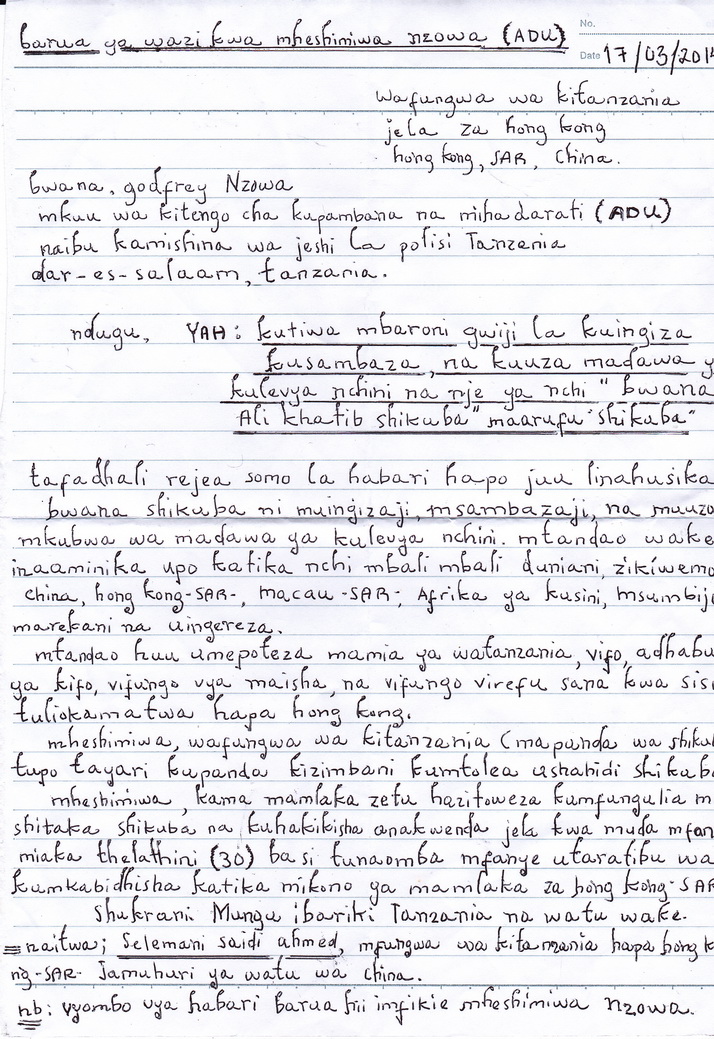 barua ya wazi kwa mheshimiwa nzowa (ADU)
No.
Date 17/03/201
wafungwa wa kitanzania
jela za hong kong
hong kong, SAR, China.
bwana, godfrey Nzowa
mkuu wa kitengo cha kupambana na mihadarati (ADU)
naibu kamishina wa jeshi la polisi Tanzania
dar-es-salaam, tanzania.
ndugu, YAH: kutiwa mbaroni gwiji la kuingiza
kusambaza, na kuuza madawa y
kulevya nchini na nje ya nchi "bwana
Ali khatib shikuba" maarufu "shikuba"
tafadhali rejea somo la habari hapo juu linahusika
bwana shikuba ni muingizaji, msambazaji, na muuzo
mkubwa wa madawa ya kulevya nchini. mtandao wake
inaaminika upo katika nchi mbali mbali duniani, zikiwemo
china, hong kong-SAR-, macau-SAR-, Afrika ya kusini, msumbiji
marekani na uingereza.
mtandao huu umepoteza mamia ya watanzania, vifo, adhabu
ya kifo, vifungo vya maisha, na vifungo virefu sana kwa sisi
tuliokamatwa hapa hong kong.
mheshimiwa, wafungwa wa kitanzania (mapanda wa shikub
tupo tayari kupanda kizimbani kumtolea ushahidi shikuba
mheshimiwa, kama mamlaka zetu hazitoweza kumfungulia m
shitaka shikuba na kuhakikisha anakwenda jela kwa muda mfan
miaka thelathini (30) basi tunaomba mfanye utaratibu wa
kumkabidhisha katika mikono ya mamlaka za hong kong-SAR
Shukrani Mungu ibariki Tanzania na watu wake.
= naitwa; Selemani saidi ahmed, mfungwa wa kitanzania hapa hong k
ng-SAR- Jamuhuri ya watu wa china.
nb: vyombo vya habari barua hii imfikie mheshimiwa nzowa.